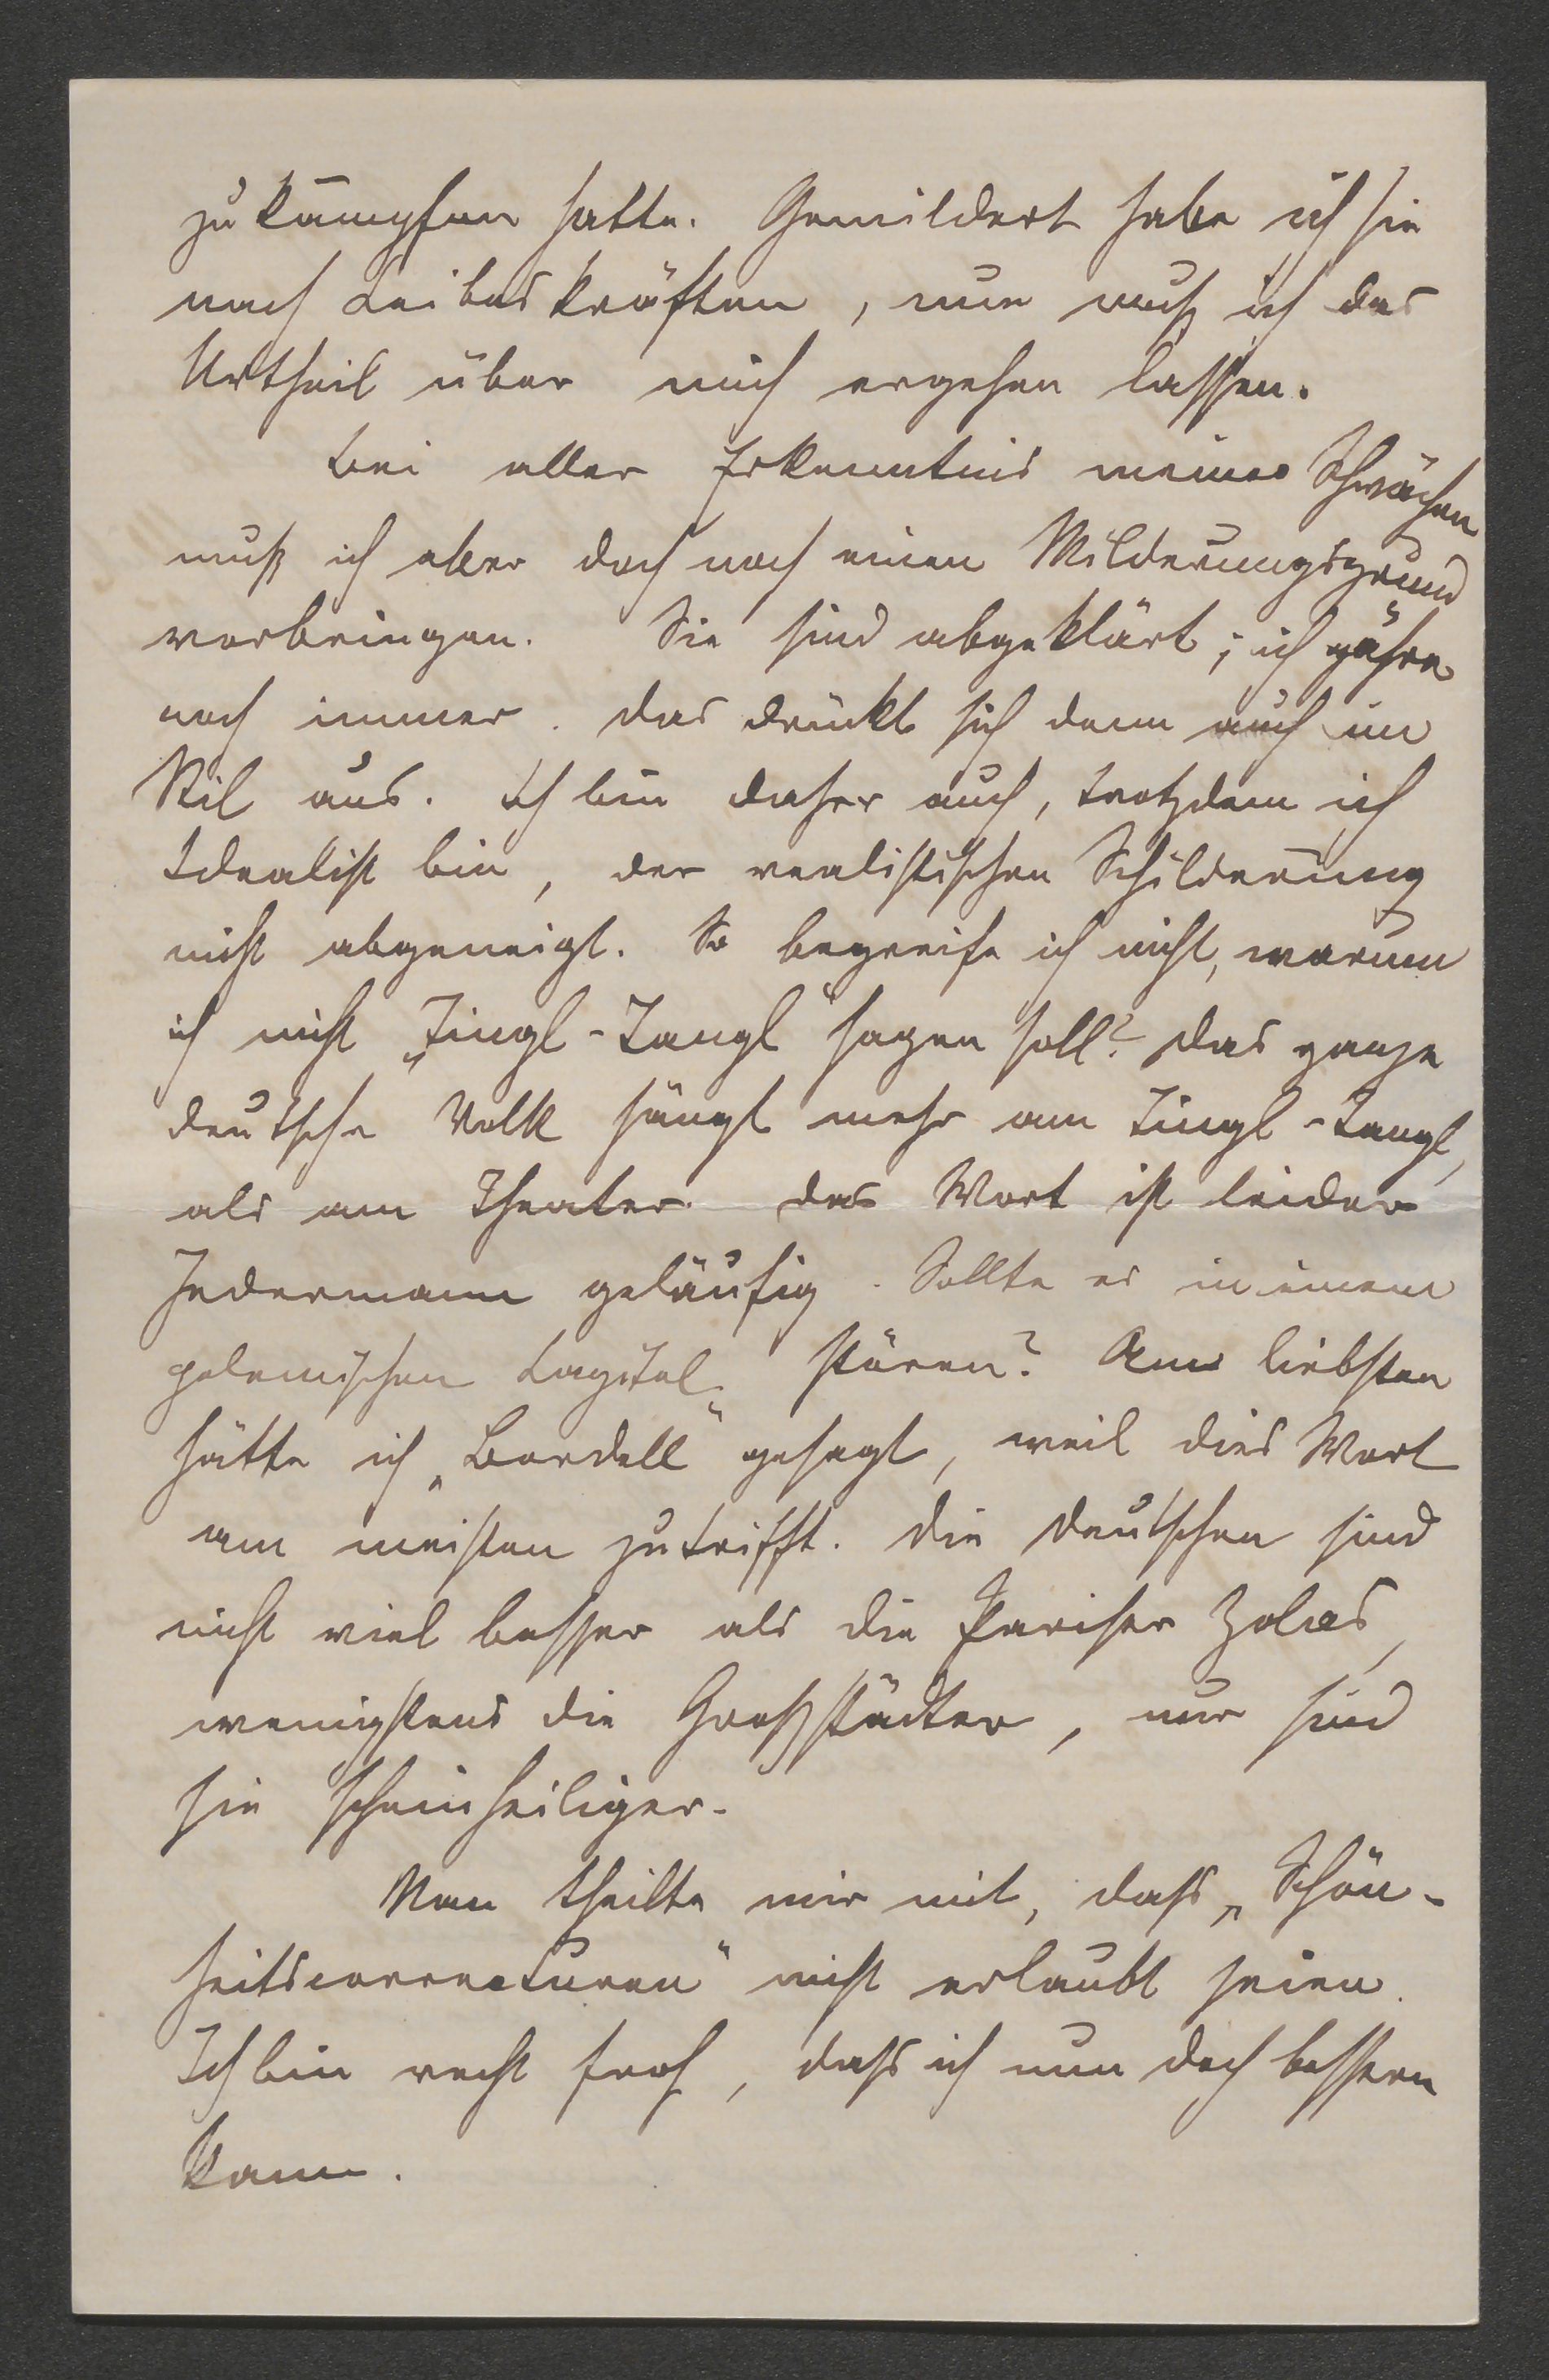 zu kämpfen hatte. Gemildert habe ich sie
nach Leibeskräften, nun muß ich das
Urtheil über mich ergehen lassen.
Bei aller Erkenntnis meiner Schwächen
muß ich aber doch noch einen Milderungsgrund
vorbringen. Sie sind abgeklärt; ich gähre
noch immer. Das drückt sich denn auch im
Stil aus. Ich bin daher auch, trotzdem ich
Idealist bin, der realistischen Schilderung
nicht abgeneigt. So begreife ich nicht, warum
ich nicht „Tingl-Tangl“ sagen soll? Das ganze
deutsche Volk hängt mehr am Tingl-Tangl,
als am Theater. Das Wort ist leider
Jedermann geläufig. Sollte es in einem
polemischen Capitel stören? Am liebsten
hätte ich „Bordell“ gesagt, weil dies Wort
am meisten zutrifft. Die Deutschen sind
nicht viel besser als die Pariser Zolas,
wenigstens die Großstädter, nur sind
sie scheinheiliger.
Man theilte mir mit, dass „Schön-
heitscorrecturen“ nicht erlaubt seien.
Ich bin recht froh, dass ich nun doch bessern
kann.